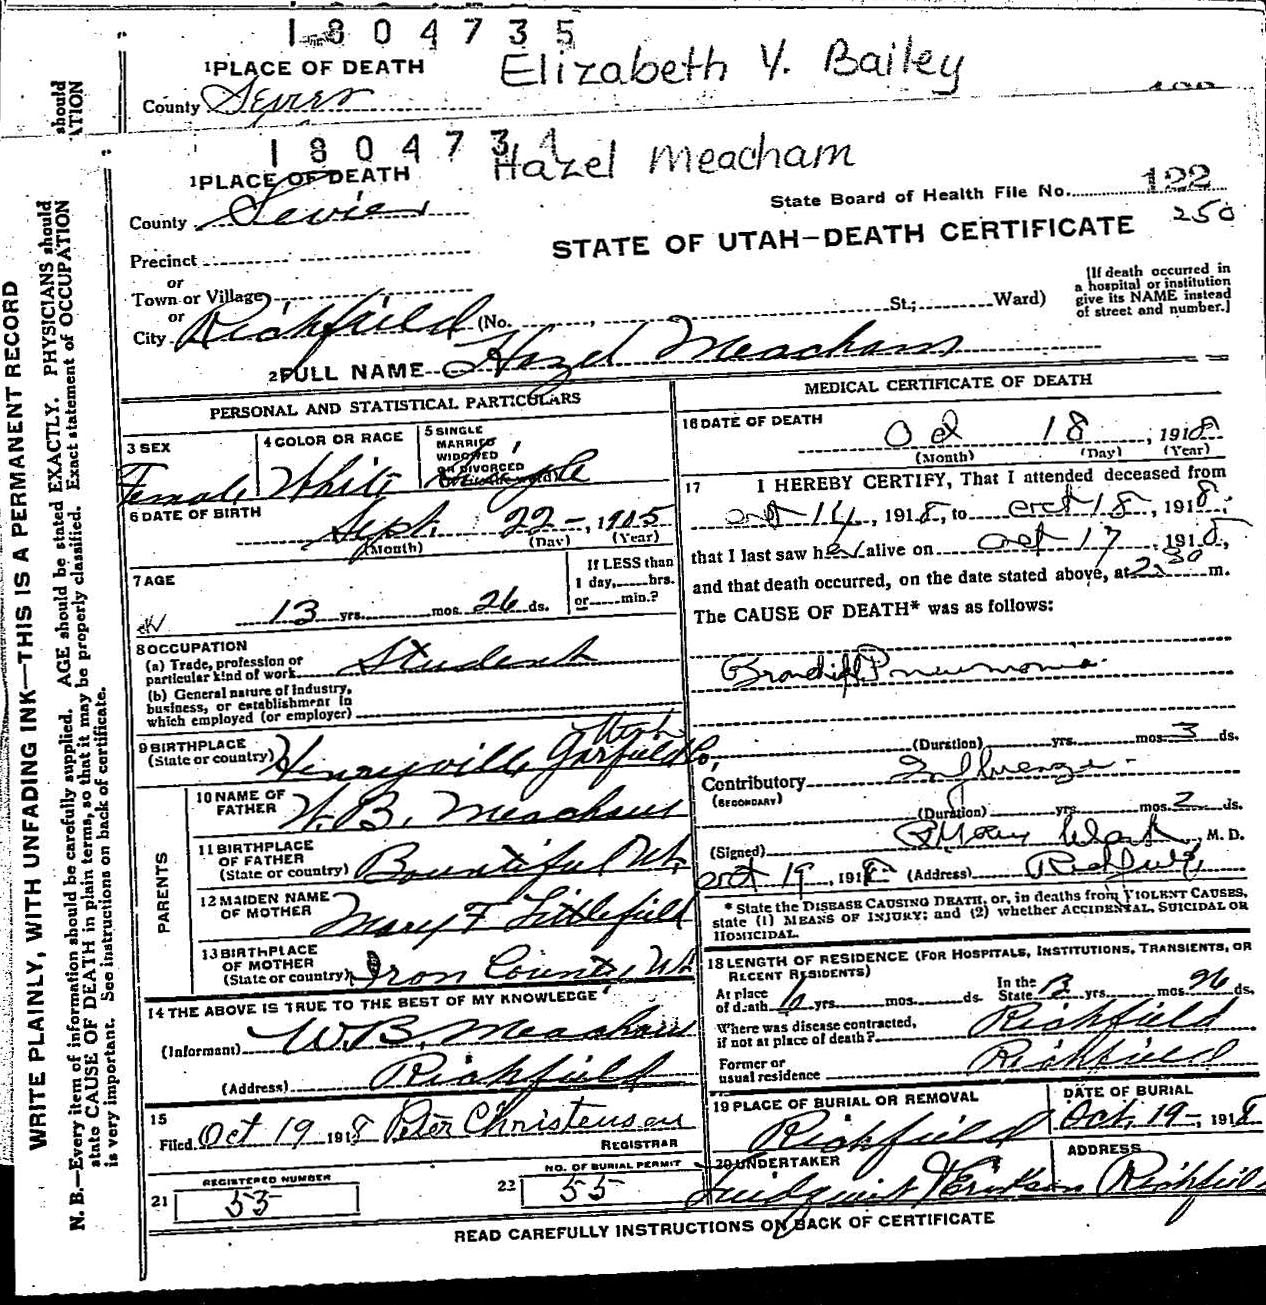 1804735
Elizabeth Y. Bailey
1 PLACE OF DEATH
County Sevier
should
ATION
180473
Hazel Meacham
1 PLACE OF DEATH
State Board of Health File No. 122
250
County Sevier
STATE OF UTAH—DEATH CERTIFICATE
Precinct
or
Town or Village
or
City Richfield (No. , St.; Ward)
[If death occurred in
a hospital or institution
give its NAME instead
of street and number.]
2 FULL NAME Hazel Meacham
PERSONAL AND STATISTICAL PARTICULARS
3 SEX
Female
4 COLOR OR RACE
White
5 SINGLE
MARRIED
WIDOWED
OR DIVORCED
Single
6 DATE OF BIRTH
Sept. 22 -, 1905
(Month) (Day) (Year)
7 AGE
13 yrs. mos. 26 ds.
If LESS than
1 day, hrs.
or min.?
8 OCCUPATION
(a) Trade, profession or
particular kind of work Student
(b) General nature of industry,
business, or establishment in
which employed (or employer)
9 BIRTHPLACE
(State or country) Henryville Garfield Co, Utah
PARENTS
10 NAME OF
FATHER W. B. Meacham
11 BIRTHPLACE
OF FATHER
(State or country) Bountiful Ut.
12 MAIDEN NAME
OF MOTHER Mary F. Littlefield
13 BIRTHPLACE
OF MOTHER
(State or country) Iron County, Ut
14 THE ABOVE IS TRUE TO THE BEST OF MY KNOWLEDGE
(Informant) W. B. Meacham
(Address) Richfield
15
Filed Oct 19 1918 Peter Christensen
REGISTRAR
REGISTERED NUMBER
21 53
NO. OF BURIAL PERMIT
22 55
MEDICAL CERTIFICATE OF DEATH
16 DATE OF DEATH
Oct 18, 1918
(Month) (Day) (Year)
17 I HEREBY CERTIFY, That I attended deceased from
oct 14, 1918, to oct 18, 1918,
that I last saw her alive on oct 17, 1918,
and that death occurred, on the date stated above, at 2:30 m.
The CAUSE OF DEATH* was as follows:
Pneumonia.
(Duration) yrs. mos. 3 ds.
Contributory Influenza -
(SECONDARY)
(Duration) yrs. mos. 2 ds.
(Signed) M. D.
oct 19, 1918 (Address) Richfield
* State the DISEASE CAUSING DEATH, or, in deaths from VIOLENT CAUSES,
state (1) MEANS OF INJURY; and (2) whether ACCIDENTAL, SUICIDAL OR
HOMICIDAL.
18 LENGTH OF RESIDENCE (FOR HOSPITALS, INSTITUTIONS, TRANSIENTS, OR
RECENT RESIDENTS)
At place
of death yrs. mos. ds.
In the
State 13 yrs. mos. 26 ds.
Where was disease contracted,
if not at place of death? Richfield
Former or
usual residence Richfield
19 PLACE OF BURIAL OR REMOVAL
Richfield
DATE OF BURIAL
Oct. 19 -, 1918
20 UNDERTAKER
ADDRESS
Richfield
READ CAREFULLY INSTRUCTIONS ON BACK OF CERTIFICATE
WRITE PLAINLY, WITH UNFADING INK—THIS IS A PERMANENT RECORD
N. B.—Every item of information should be carefully supplied. AGE should be stated EXACTLY. PHYSICIANS should
state CAUSE OF DEATH in plain terms, so that it may be properly classified. Exact statement of OCCUPATION
is very important. See instructions on back of certificate.